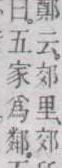 鄭云郊里郊
日五家爲鄰